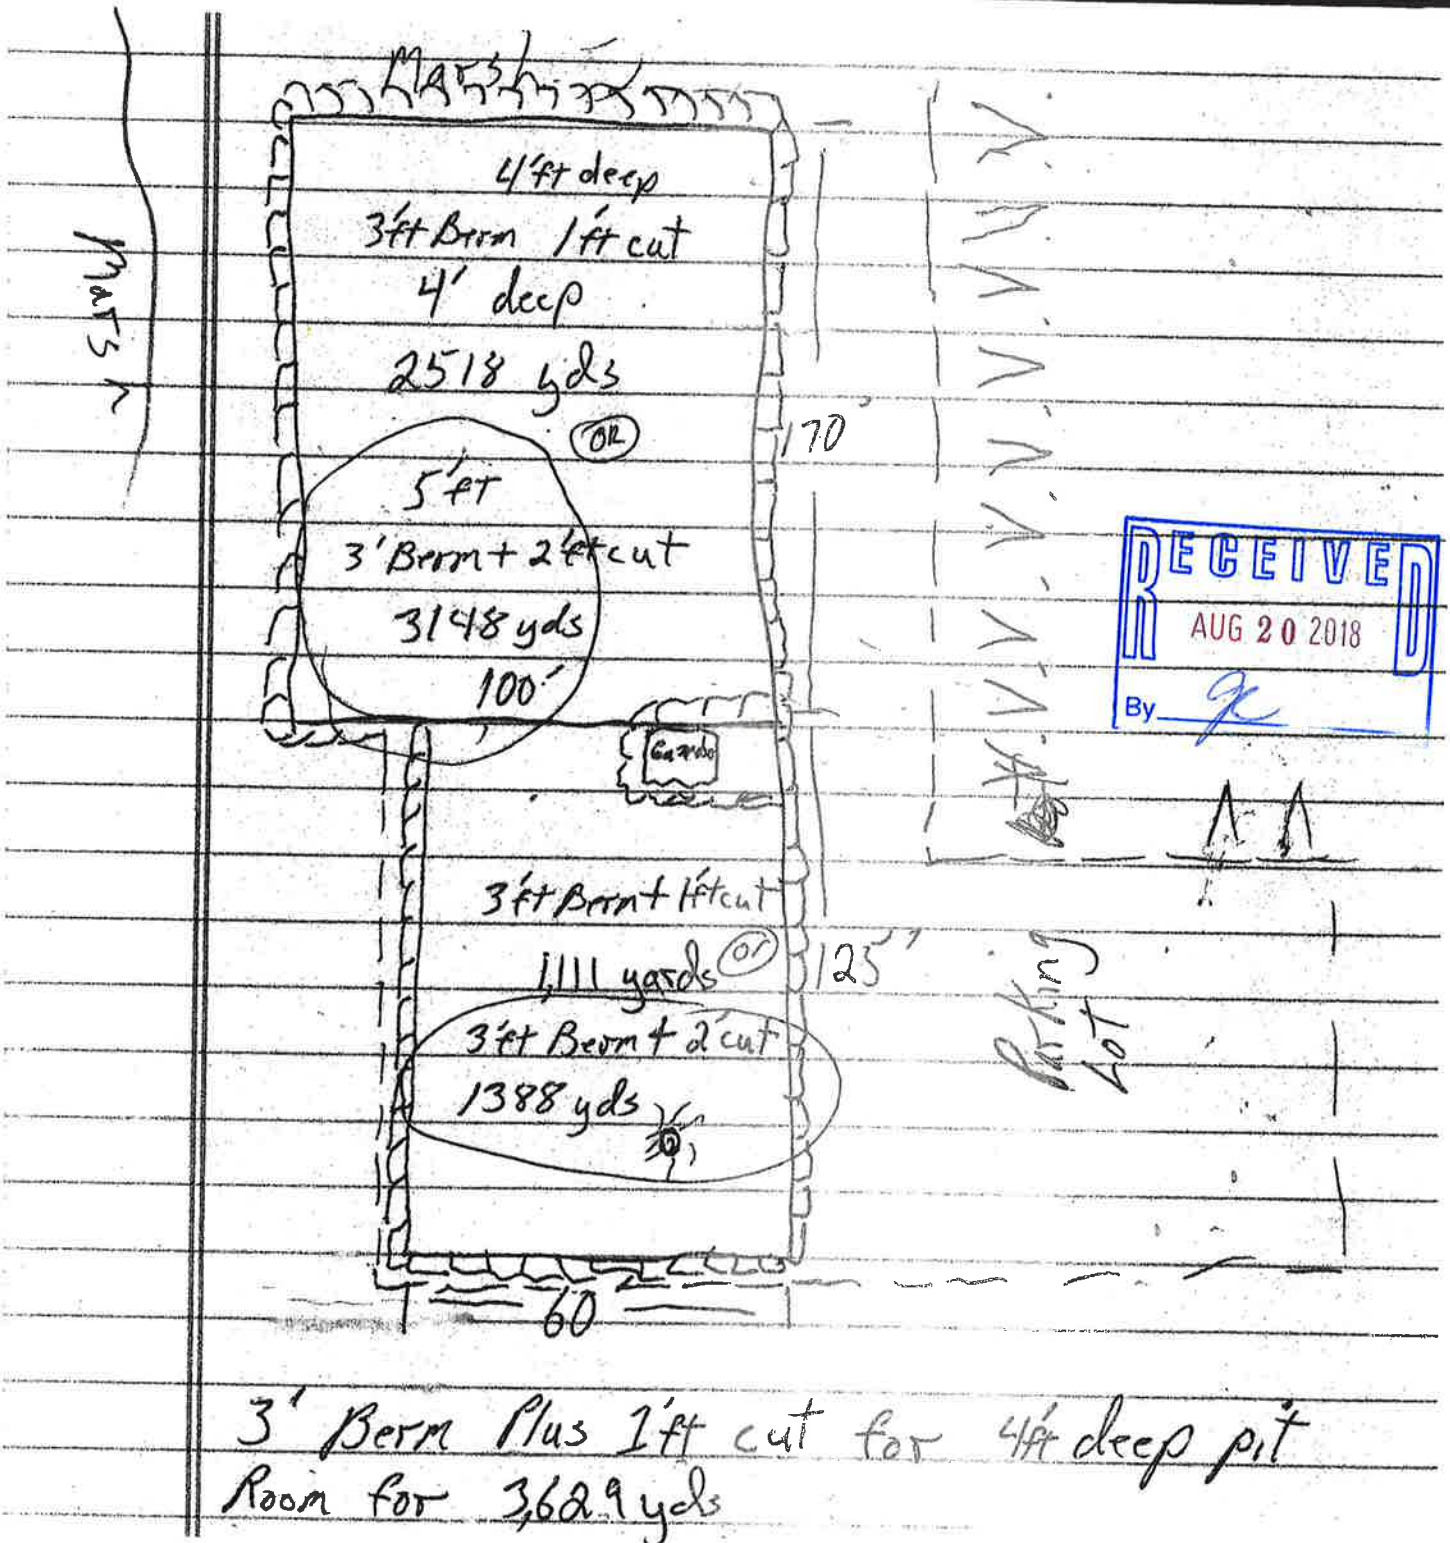 Marsh
Marsh
4'ft deep
3'ft Berm 1'ft cut
4' deep
2518 yds
OR
170'
5'ft
3' Berm + 2'ft cut
3148 yds
100'
RECEIVED
AUG 20 2018
By
Gazebo
3'ft Berm + 1'ft cut
1,111 yards or
125'
3'ft Berm + 2' cut
1388 yds
Parking
Lot
60
3' Berm Plus 1'ft cut for 4'ft deep pit
Room for 3,629 yds